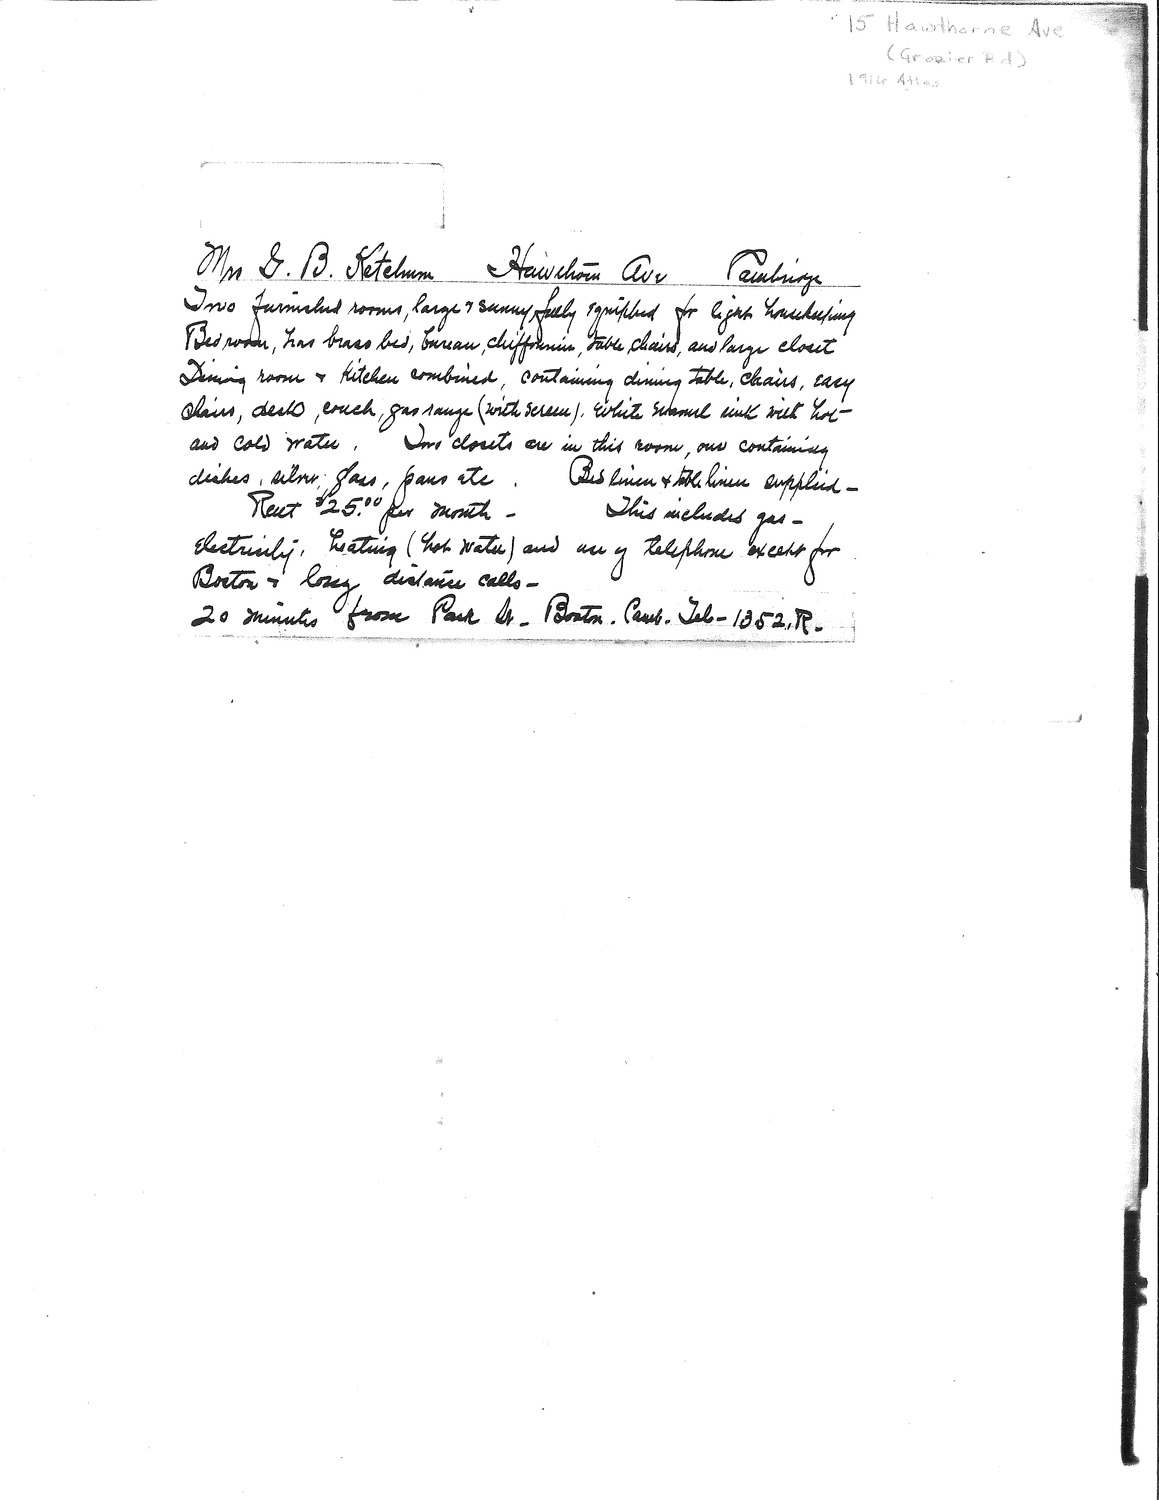 15 Hawthorne Ave
(Grozier Rd)
1916 Atlas
Mrs G. B. Ketchum Hawthorn Ave Cambridge
Two furnished rooms, large & sunny, fully equipped for light housekeeping
Bedroom, has brass bed, bureau, chiffonier, table, chairs, and large closet
Dining room & kitchen combined, containing dining table, chairs, easy
chairs, desk, couch, gas range (with screen). White enamel sink with hot
and cold water. Two closets are in this room, one containing
dishes, silver, glass, pans etc. Bed linen & table linen supplied –
Rent $25.00 per month – This includes gas –
electricity, heating (hot water) and use of telephone except for
Boston & long distance calls –
20 minutes from Park St – Boston. Camb. Tel – 1352.R –